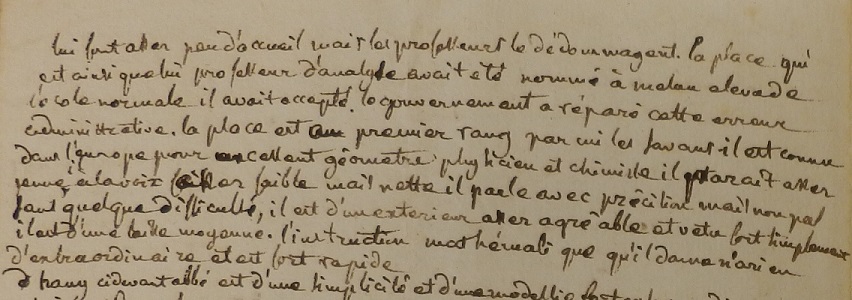 lui font asser peu d'accueil mais les professeurs le dédommagent. la place qui
est ainsi que lui professeur d'analyse avait été nommé à malan eleva de
l'école normale il avait accepté. le gouvernement a réparé cette erreur
administrative. la place est au premier rang parmi les savans il est connu
dans l'europe pour excellent géometre physicien et chimiste il parait asser
jeune, a la voix asser faible mais nette il parle avec précision mais non pas
sans quelque difficulté, il est d'un exterieur asser agréable et vetu fort simplement
il est d'une taille moyenne. l'instruction mathématique qu'il donne n'a rien
d'extraordinaire et est fort rapide
hauy cidevant abbé est d'une simplicité et d'une modestie